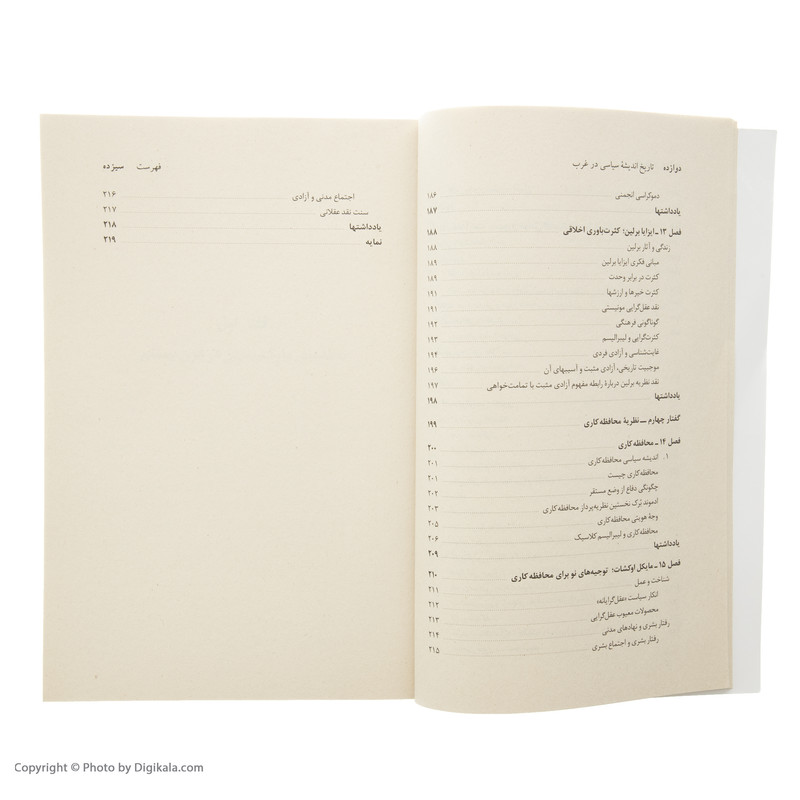 دوازده تاریخ اندیشهٔ سیاسی در غرب
دموکراسی انجمنی ۱۸۶
یادداشتها ۱۸۷
فصل ۱۳ ـ ایزایا برلین: کثرت‌باوری اخلاقی ۱۸۸
زندگی و آثار برلین ۱۸۸
مبانی فکری ایزایا برلین ۱۸۹
کثرت در برابر وحدت ۱۸۹
کثرت خیرها و ارزشها ۱۹۱
نقد عقل‌گرایی مونیستی ۱۹۱
گوناگونی فرهنگی ۱۹۲
کثرت‌گرایی و لیبرالیسم ۱۹۳
غایت‌شناسی و آزادی فردی ۱۹۴
موجبیت تاریخی، آزادی مثبت و آسیبهای آن ۱۹۶
نقد نظریه برلین دربارهٔ رابطه مفهوم آزادی مثبت با تمامت‌خواهی ۱۹۷
یادداشتها ۱۹۸
گفتار چهارم ــ نظریهٔ محافظه‌کاری ۱۹۹
فصل ۱۴ ـ محافظه‌کاری ۲۰۰
۱. اندیشه سیاسی محافظه‌کاری ۲۰۱
محافظه‌کاری چیست ۲۰۱
چگونگی دفاع از وضع مستقر ۲۰۲
ادموند بُرک نخستین نظریه‌پرداز محافظه‌کاری ۲۰۳
وجهٔ هویتی محافظه‌کاری ۲۰۵
محافظه‌کاری و لیبرالیسم کلاسیک ۲۰۶
یادداشتها ۲۰۹
فصل ۱۵ ـ مایکل اوکشات: توجیه‌های نو برای محافظه‌کاری ۲۱۰
شناخت و عمل ۲۱۱
انکار سیاست «عقل‌گرایانه» ۲۱۲
محصولات معیوب عقل‌گرایی ۲۱۳
رفتار بشری و نهادهای مدنی ۲۱۴
رفتار بشری و اجتماع بشری ۲۱۵
فهرست سیزده
اجتماع مدنی و آزادی ۲۱۶
سنت نقد عقلانی ۲۱۷
یادداشتها ۲۱۸
نمایه ۲۱۹
Copyright © Photo by Digikala.com